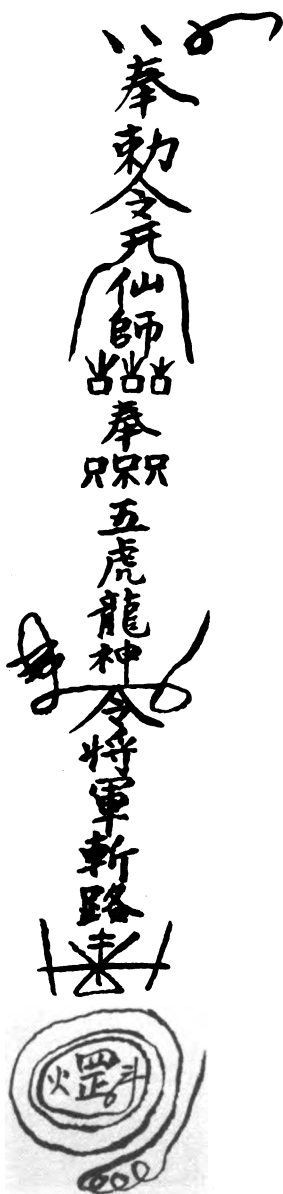 奉
勅
令
仙
師
奉
五
虎
龍
神
令
將
軍
斬
路
火罡斗